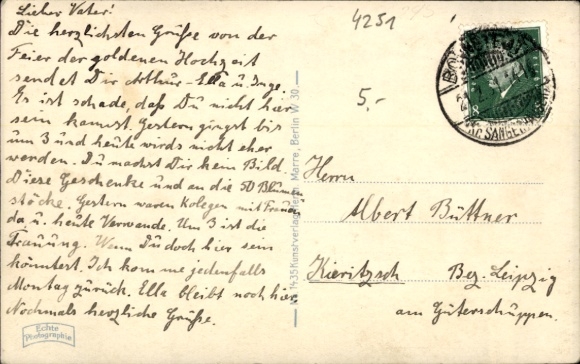 Lieber Vater!
Die herzlichsten Grüße von der
Feier der goldenen Hochzeit
sendet Dir Arthur – Ella u. Inge.
Es ist schade, daß Du nicht hier
sein kannst. Gestern gingst bis
um 3 und heute wirds nicht eher
werden. Du machst Dir kein Bild.
Diese Geschenke und an die 50 Blumen
stöcke. Gestern waren Kolegen mit Frauen
da u. heute Verwande. Um 3 ist die
Trauung. Wenn Du doch hier sein
könntest. Ich komme jedenfalls
Montag zurück. Ella bleibt noch hier
Nochmals herzliche Grüße.
Echte
Photographie
N. 1435 Kunstverlag Herm. Marre, Berlin W 30.
4251
5,-
KR. SANGERHAUSEN
Herrn
Albert Büttner
Kieritzsch Bez. Leipzig
am Güterschuppen.